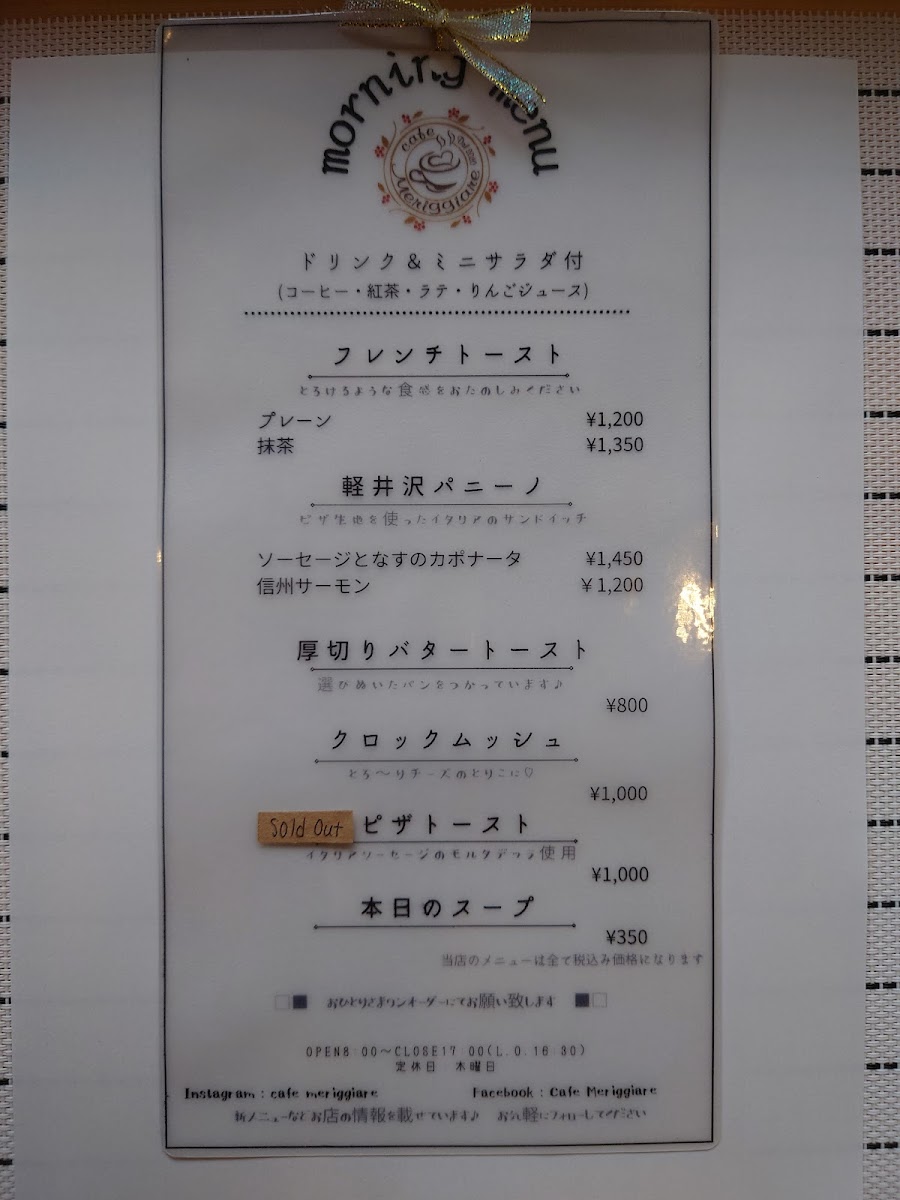 morning menu
cafe
Meriggiare
ドリンク&ミニサラダ付
(コーヒー・紅茶・ラテ・りんごジュース)
フレンチトースト
とろけるような食感をおたのしみください
プレーン ¥1,200
抹茶 ¥1,350
軽井沢パニーノ
ピザ生地を使ったイタリアのサンドイッチ
ソーセージとなすのカポナータ ¥1,450
信州サーモン ¥1,200
厚切りバタートースト
選びぬいたパンをつかっています♪
¥800
クロックムッシュ
とろ〜りチーズのとりこに♡
¥1,000
Sold Out ピザトースト
イタリアソーセージのモルタデッラ使用
¥1,000
本日のスープ
¥350
当店のメニューは全て税込み価格になります
おひとりさまワンオーダーにてお願い致します
OPEN8:00〜CLOSE17:00(L.O.16:30)
定休日 木曜日
Instagram : cafe meriggiare Facebook : Cafe Meriggiare
新メニューなどお店の情報を載せています♪ お気軽にフォローしてください